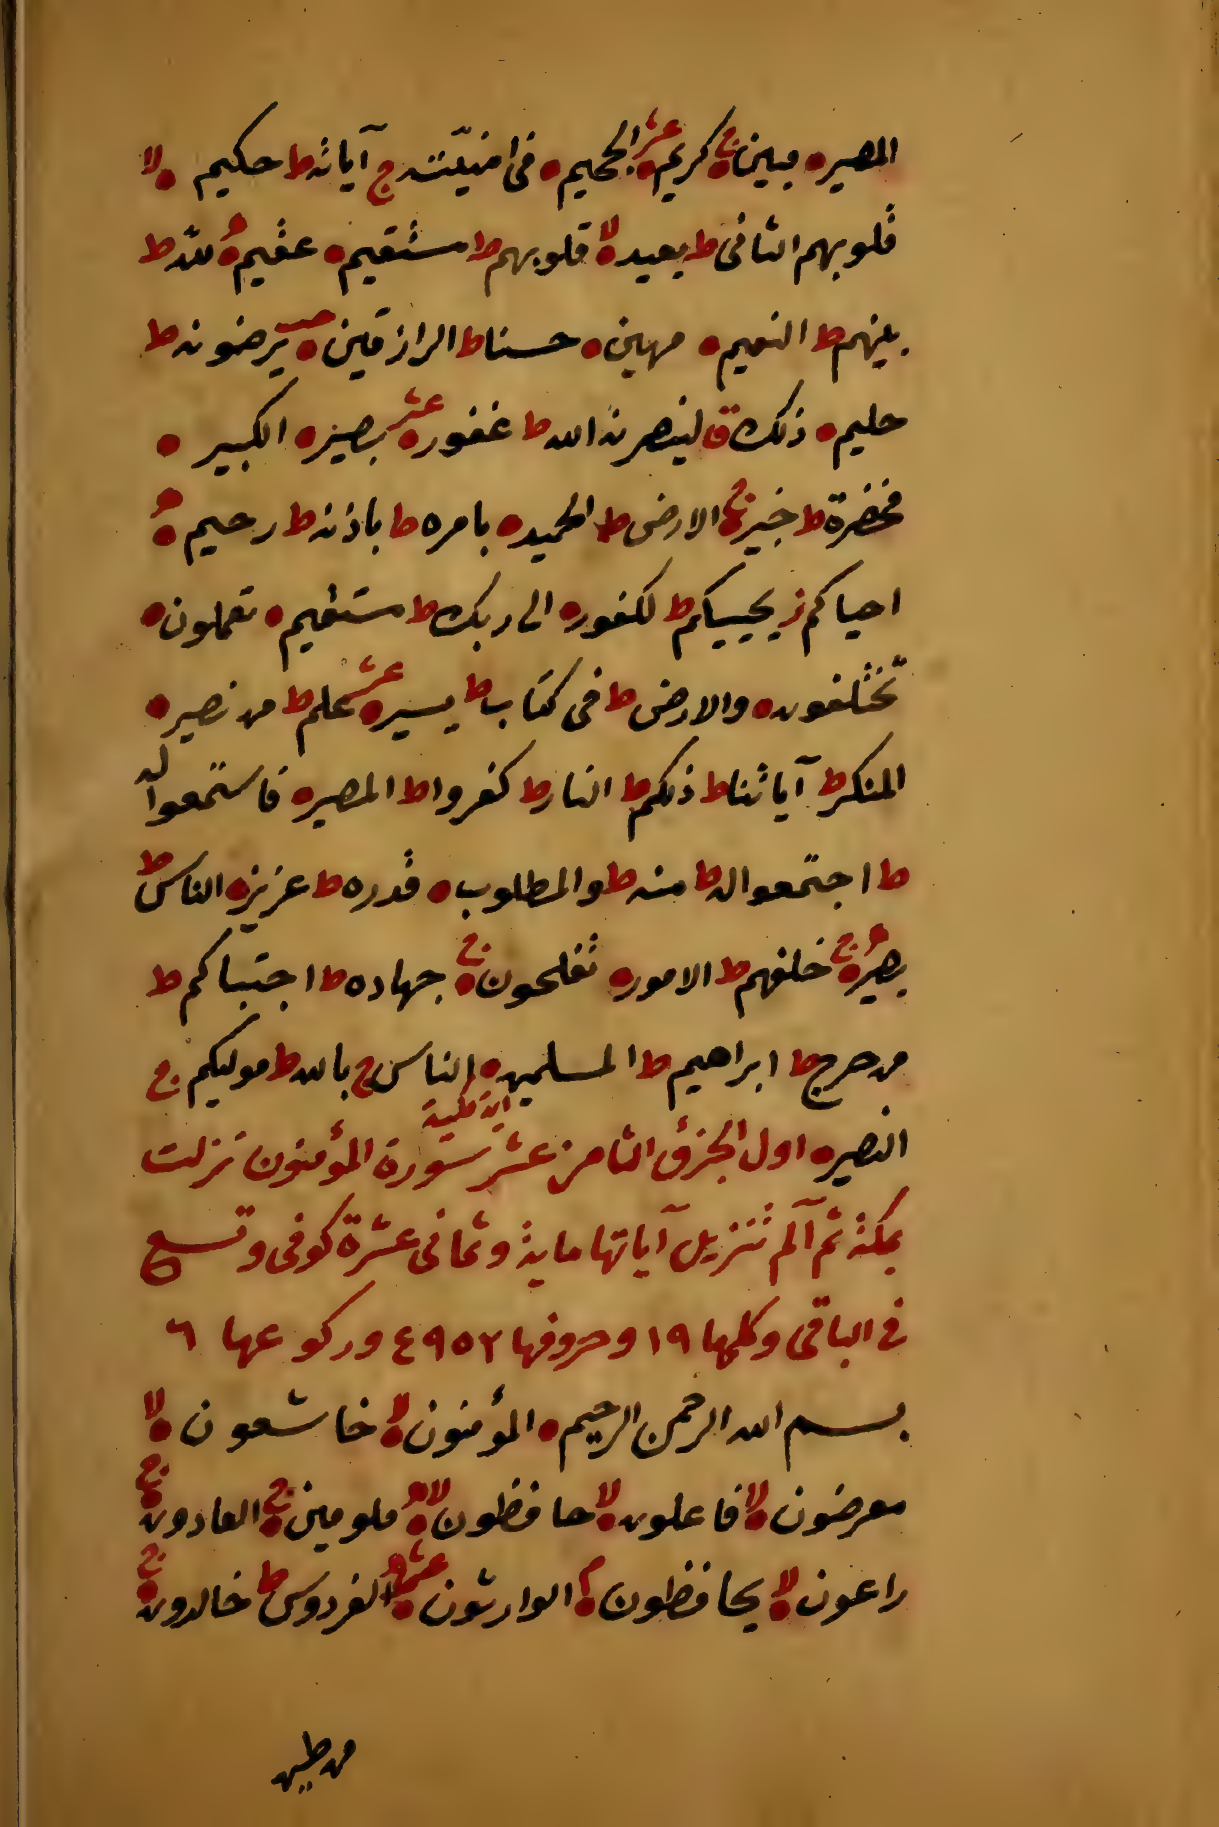 المصير ه مبين ه ج كريم ه عشر الجحيم ه فى امنيّته ج آياته ط حكيم ه لا
قلوبهم الثانى ط بعيد ه لا قلوبهم ط مستقيم ه عقيم ه لله ط
بينهم ط النعيم ه مهين ه حسنا ط الرازقين ه يرضونه ط
حليم ه ذلك ق لينصرنه الله ط غفور ه عشر بصير ه الكبير ه
مخضرة ط خبير ه ج الارض ط الحميد ه بامره ط باذنه ط رحيم ه
احياكم ز يحييكم ط لكفور ه الى ربك ط مستقيم ه تعملون ه
تختلفون ه والارض ط فى كتاب ط يسير ه عشر علم ط من نصير ه
المنكر ط آياتنا ط ذلكم ط النار ط كفروا ط المصير ه فاستمعوا له
ط اجتمعوا له ط منه ط والمطلوب ه قدره ط عزيز ه الناس ط
بصير ه ج خلفهم ط الامور ه تفلحون ه ج جهاده ط اجتباكم ط
من حرج ط ابراهيم ط المسلمين ه الناس ج بالله ط موليكم ج
النصير ه اول الجزؤ الثامن عشر سورة المؤمنون نزلت
اية مكية
بمكة ثم آلم تنزيل آياتها ماية وثمانى عشرة كوفى وتسع
فى الباقى وكلمها ١٩ وحروفها ٤٩٥٢ وركوعها ٦
بسم الله الرحمن الرحيم ه المؤمنون ه لا خاشعون ه لا
معرضون ه لا فاعلون ه لا حافظون ه لا ملومين ه ج العادون ه ج
راعون ه لا يحافظون ه م الوارثون ه عشر الفردوس ط خالدون ه ج
من طين